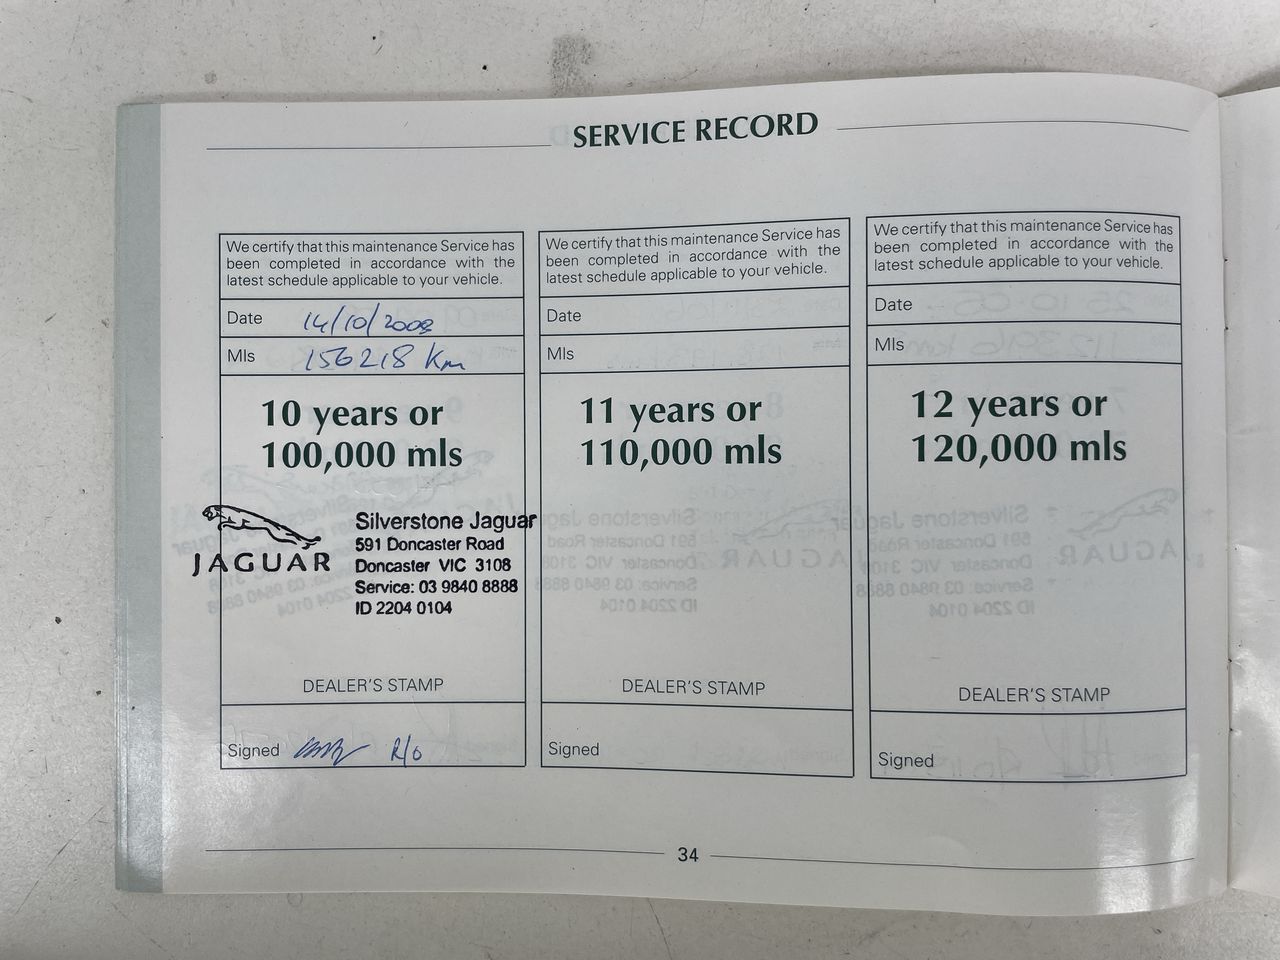 SERVICE RECORD
We certify that this maintenance Service has
been completed in accordance with the
latest schedule applicable to your vehicle.
Date 14/10/2008
Mls 156218 Km
10 years or
100,000 mls
JAGUAR
Silverstone Jaguar
591 Doncaster Road
Doncaster VIC 3108
Service: 03 9840 8888
ID 2204 0104
DEALER'S STAMP
Signed R/O
We certify that this maintenance Service has
been completed in accordance with the
latest schedule applicable to your vehicle.
Date
Mls
11 years or
110,000 mls
DEALER'S STAMP
Signed
We certify that this maintenance Service has
been completed in accordance with the
latest schedule applicable to your vehicle.
Date
Mls
12 years or
120,000 mls
DEALER'S STAMP
Signed
34